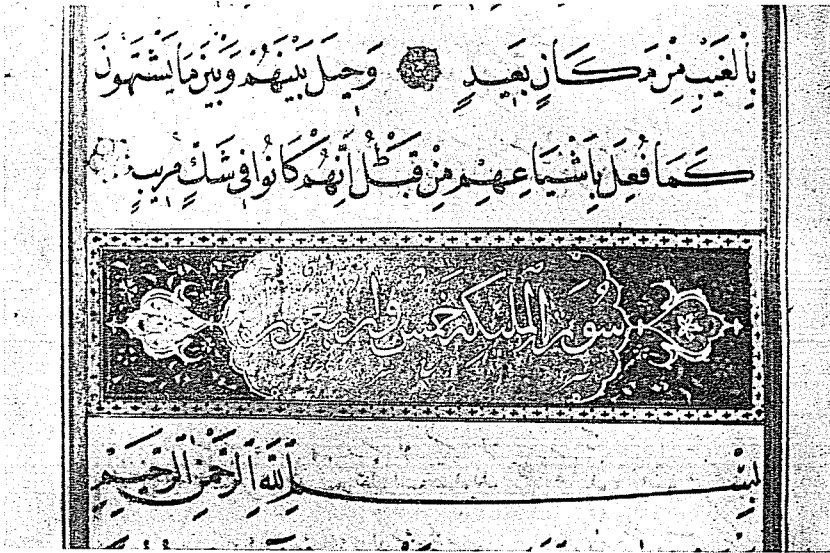 بِالْغَيْبِ مِنْ مَكَانٍ بَعِيدٍ وَحِيلَ بَيْنَهُمْ وَبَيْنَ مَا يَشْتَهُونَ
كَمَا فُعِلَ بِأَشْيَاعِهِمْ مِنْ قَبْلُ إِنَّهُمْ كَانُوا فِي شَكٍّ مُرِيبٍ
سورة الملئكة خمس واربعون
بِسْمِ اللَّهِ الرَّحْمَنِ الرَّحِيمِ